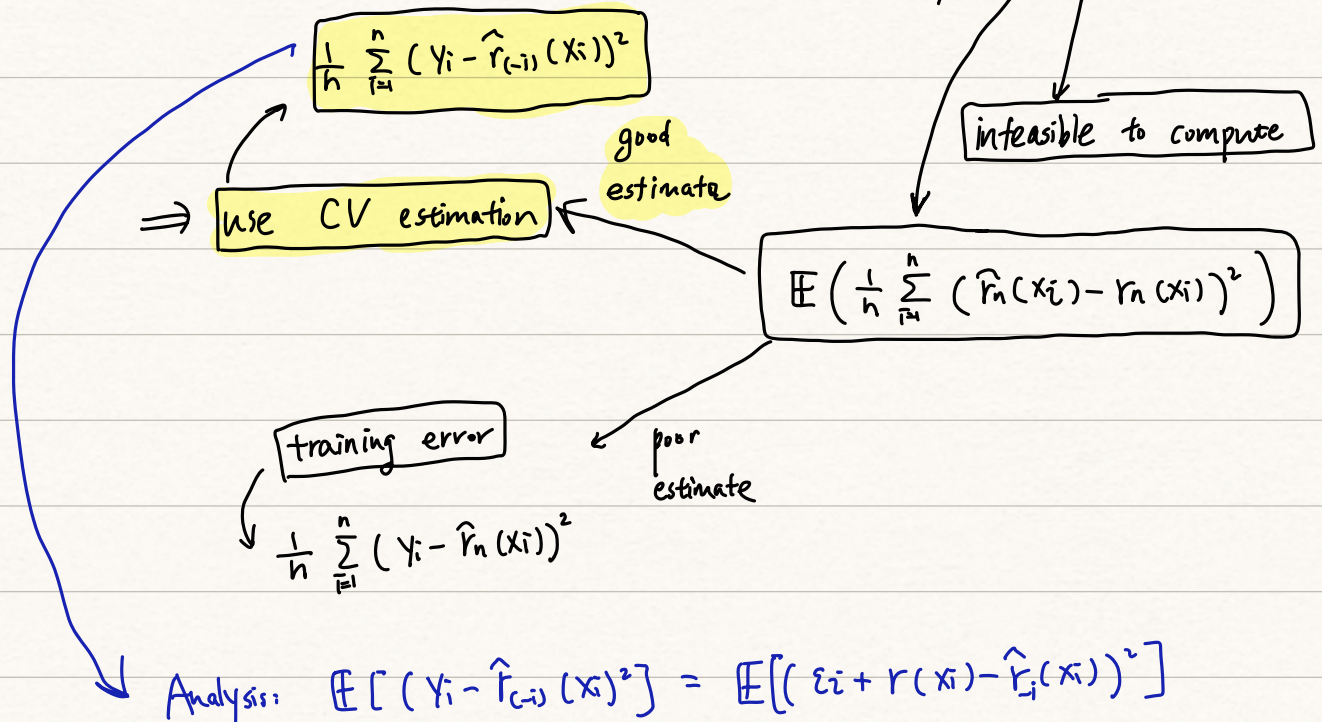 1/n Σ_{i=1}^{n} (Yi - r̂_(-i) (Xi))²
infeasible to compute
good
estimate
⇒ use CV estimation
𝔼 ( 1/n Σ_{i=1}^{n} (r̂n(Xi) - rn(Xi))² )
training error
poor
estimate
1/n Σ_{i=1}^{n} (Yi - r̂n(Xi))²
Analysis: 𝔼[(Yi - r̂_(-i) (Xi)²] = 𝔼[(εi + r(Xi) - r̂_-i(Xi))²]